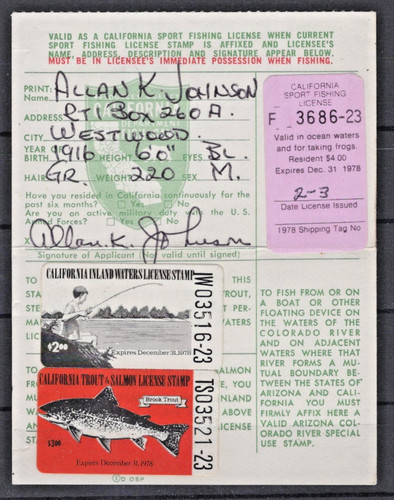 VALID AS A CALIFORNIA SPORT FISHING LICENSE WHEN CURRENT
SPORT FISHING LICENSE STAMP IS AFFIXED AND LICENSEE'S
NAME, ADDRESS, DESCRIPTION AND SIGNATURE APPEAR BELOW.
MUST BE IN LICENSEE'S IMMEDIATE POSSESSION WHEN FISHING.
PRINT:
Name ALLAN K. JOHNSON
ADDRESS RT BOX 260 A.
CITY WESTWOOD.
YEAR
BIRTH 1916 HEIGHT 6'0" BL.
GR. 220 SEX M.
Have you resided in California continuously for the
past six months? Yes No
Are you on active military duty with the U. S.
Armed Forces? Yes No
Allan K. Johnson
Signature of Applicant (Not valid until signed)
CALIFORNIA
SPORT FISHING
LICENSE
F 3686-23
Valid in ocean waters
and for taking frogs.
Resident $4.00
Expires Dec. 31, 1978
2-3
Date License Issued
1978 Shipping Tag No
CALIFORNIA INLAND WATERS LICENSE STAMP
$2.00
Expires December 31, 1978
IW03516-23
CALIFORNIA TROUT & SALMON LICENSE STAMP
Brook Trout
$3.00
Expires December 31, 1978
TS03521-23
TO FISH FROM OR ON
A BOAT OR OTHER
FLOATING DEVICE ON
THE WATERS OF THE
COLORADO RIVER
AND ON ADJACENT
WATERS WHERE THAT
RIVER FORMS A MU-
TUAL BOUNDARY BE-
TWEEN THE STATES OF
ARIZONA AND CALI-
FORNIA YOU MUST
FIRMLY AFFIX HERE A
VALID ARIZONA COLO-
RADO RIVER SPECIAL
USE STAMP.
OSP